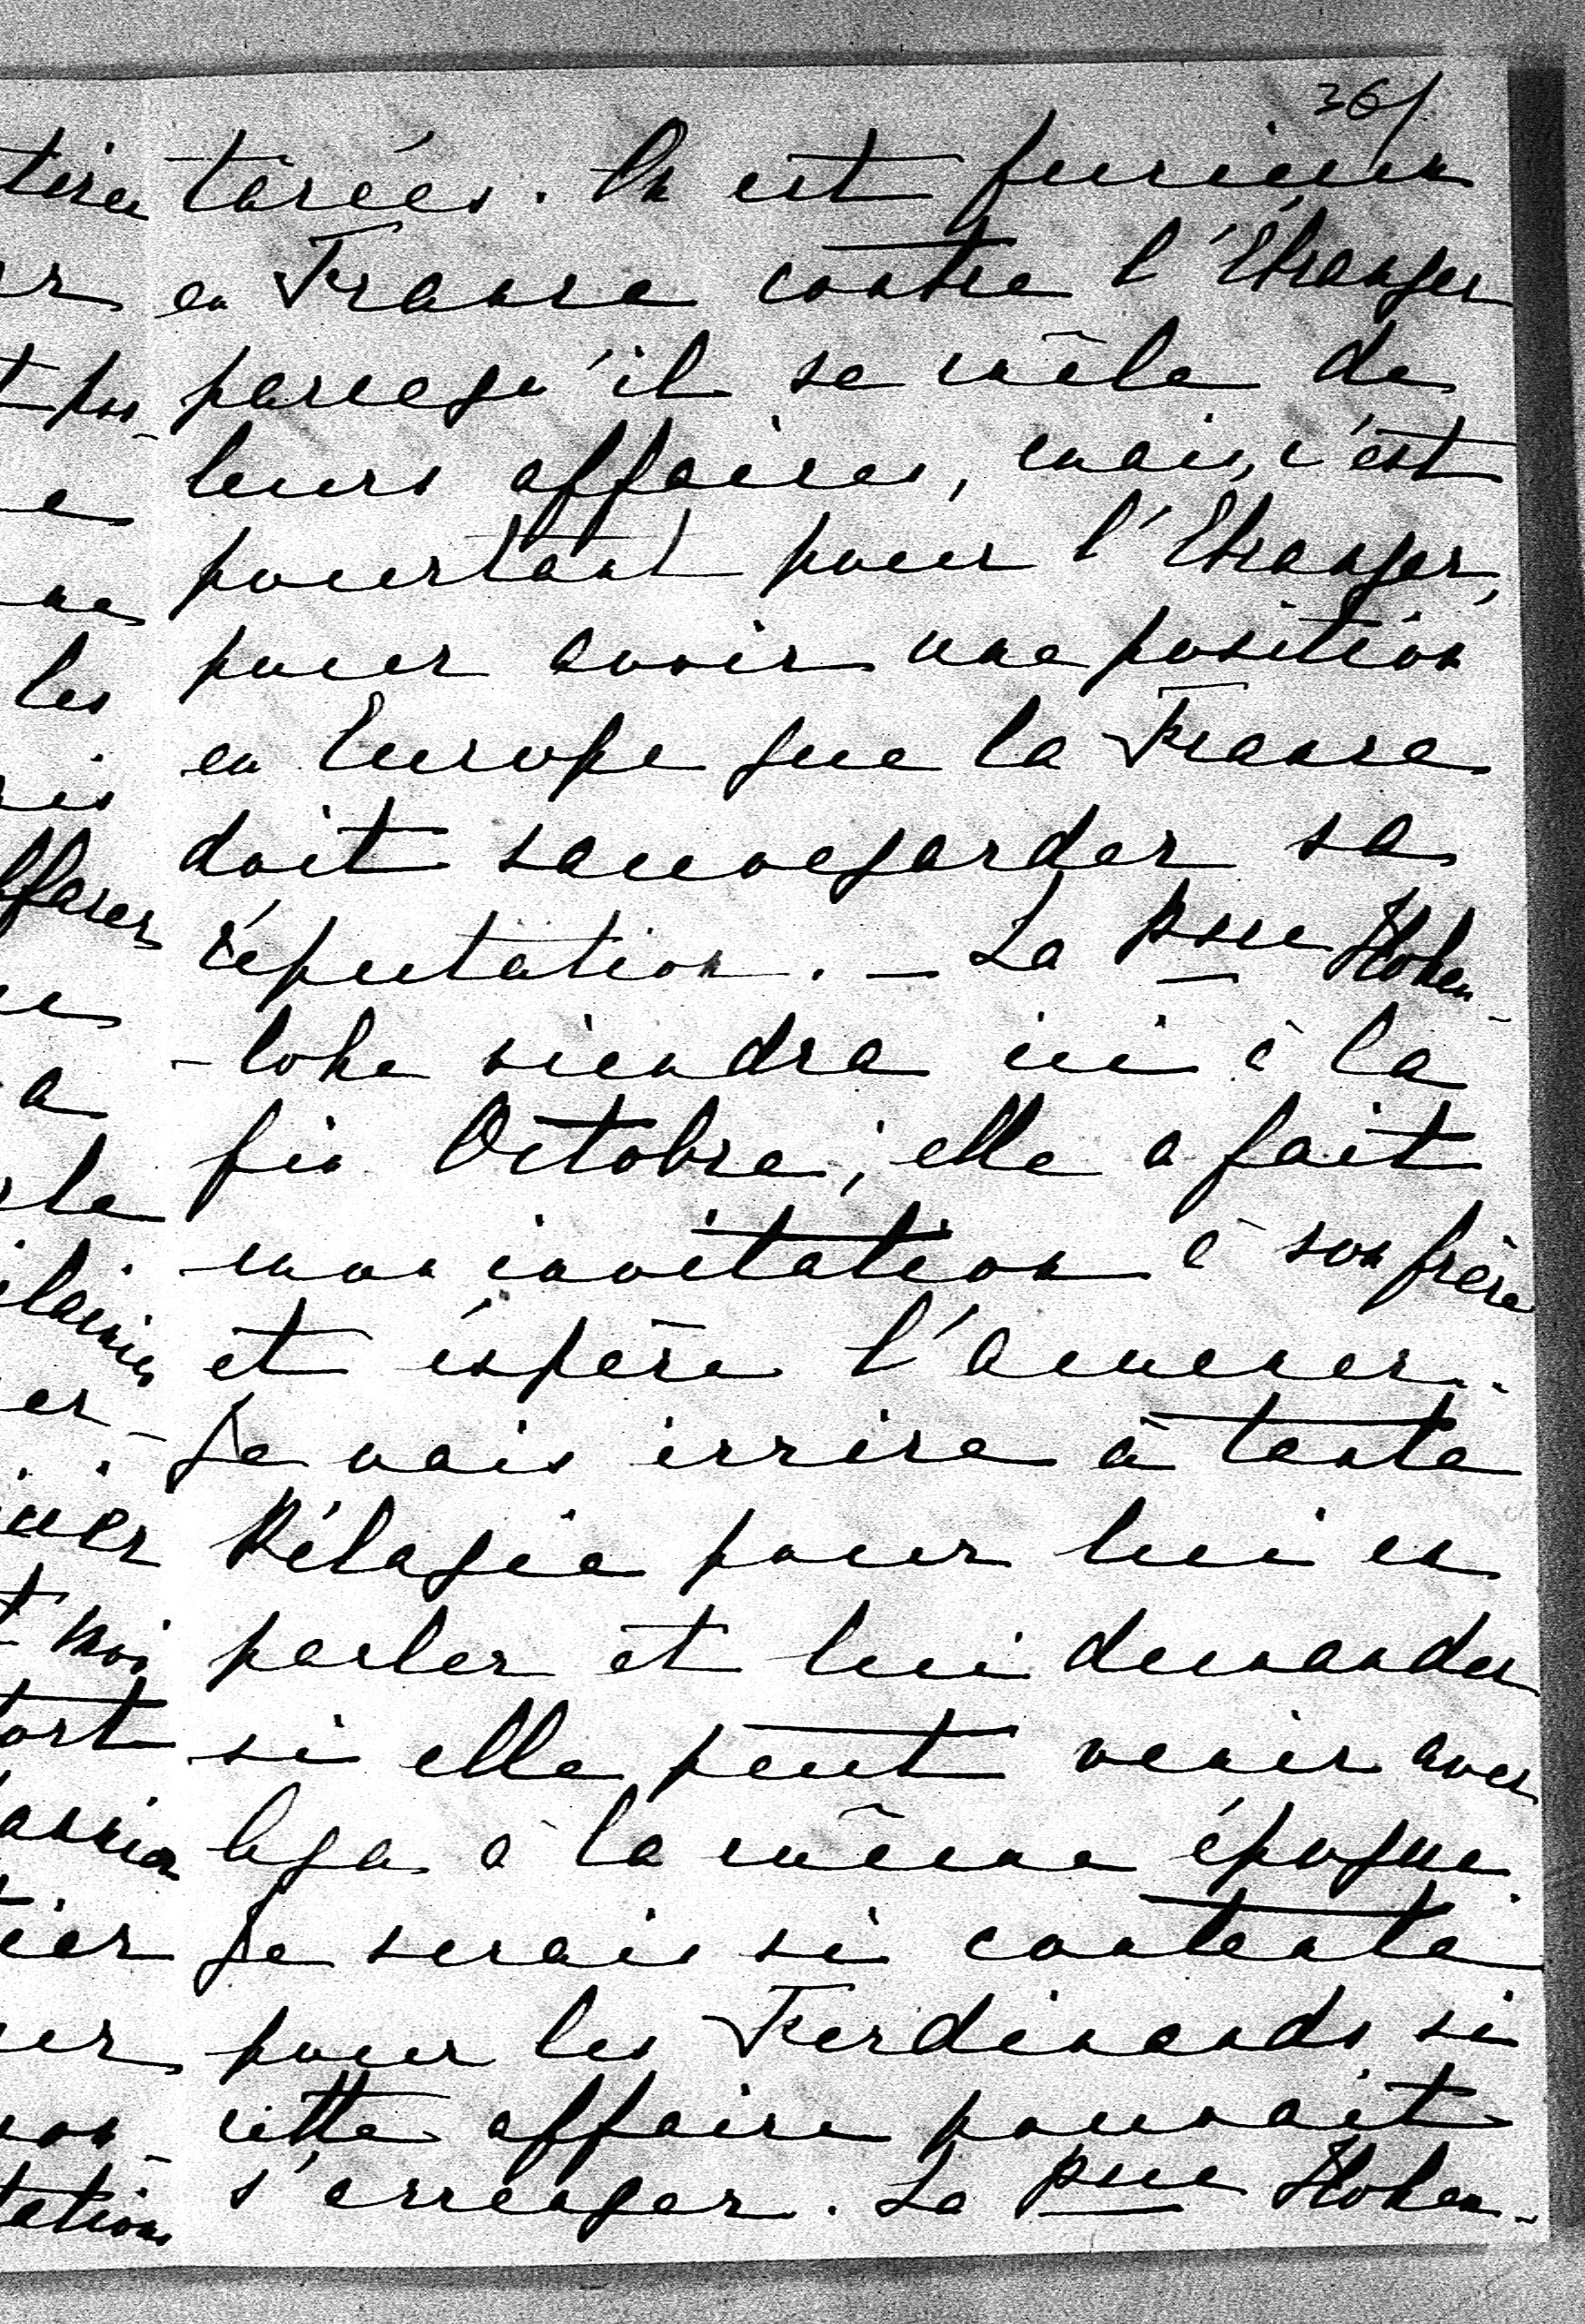 36/
tarées. On est furieux
en France contre l'Etranger
parcequ'il se mêle de
leurs affaires, mais, c'est
pourtant pour l'Etranger,
pour avoir une position
en Europe que la France
doit sauvegarder sa
réputation. – La Psse Hohen-
-lohe viendra ici à la
fin Octobre; elle a fait
mon invitation à son frère
et éspère l'amener..
– Je vais écrire à tante
Pélagie pour lui en
parler et lui demander
si elle peut venir avec
Olga à la même époque.
Je serais si contente
pour les Ferdinands si
cette affaire pouvait
s'arranger. La Psse Hohen-